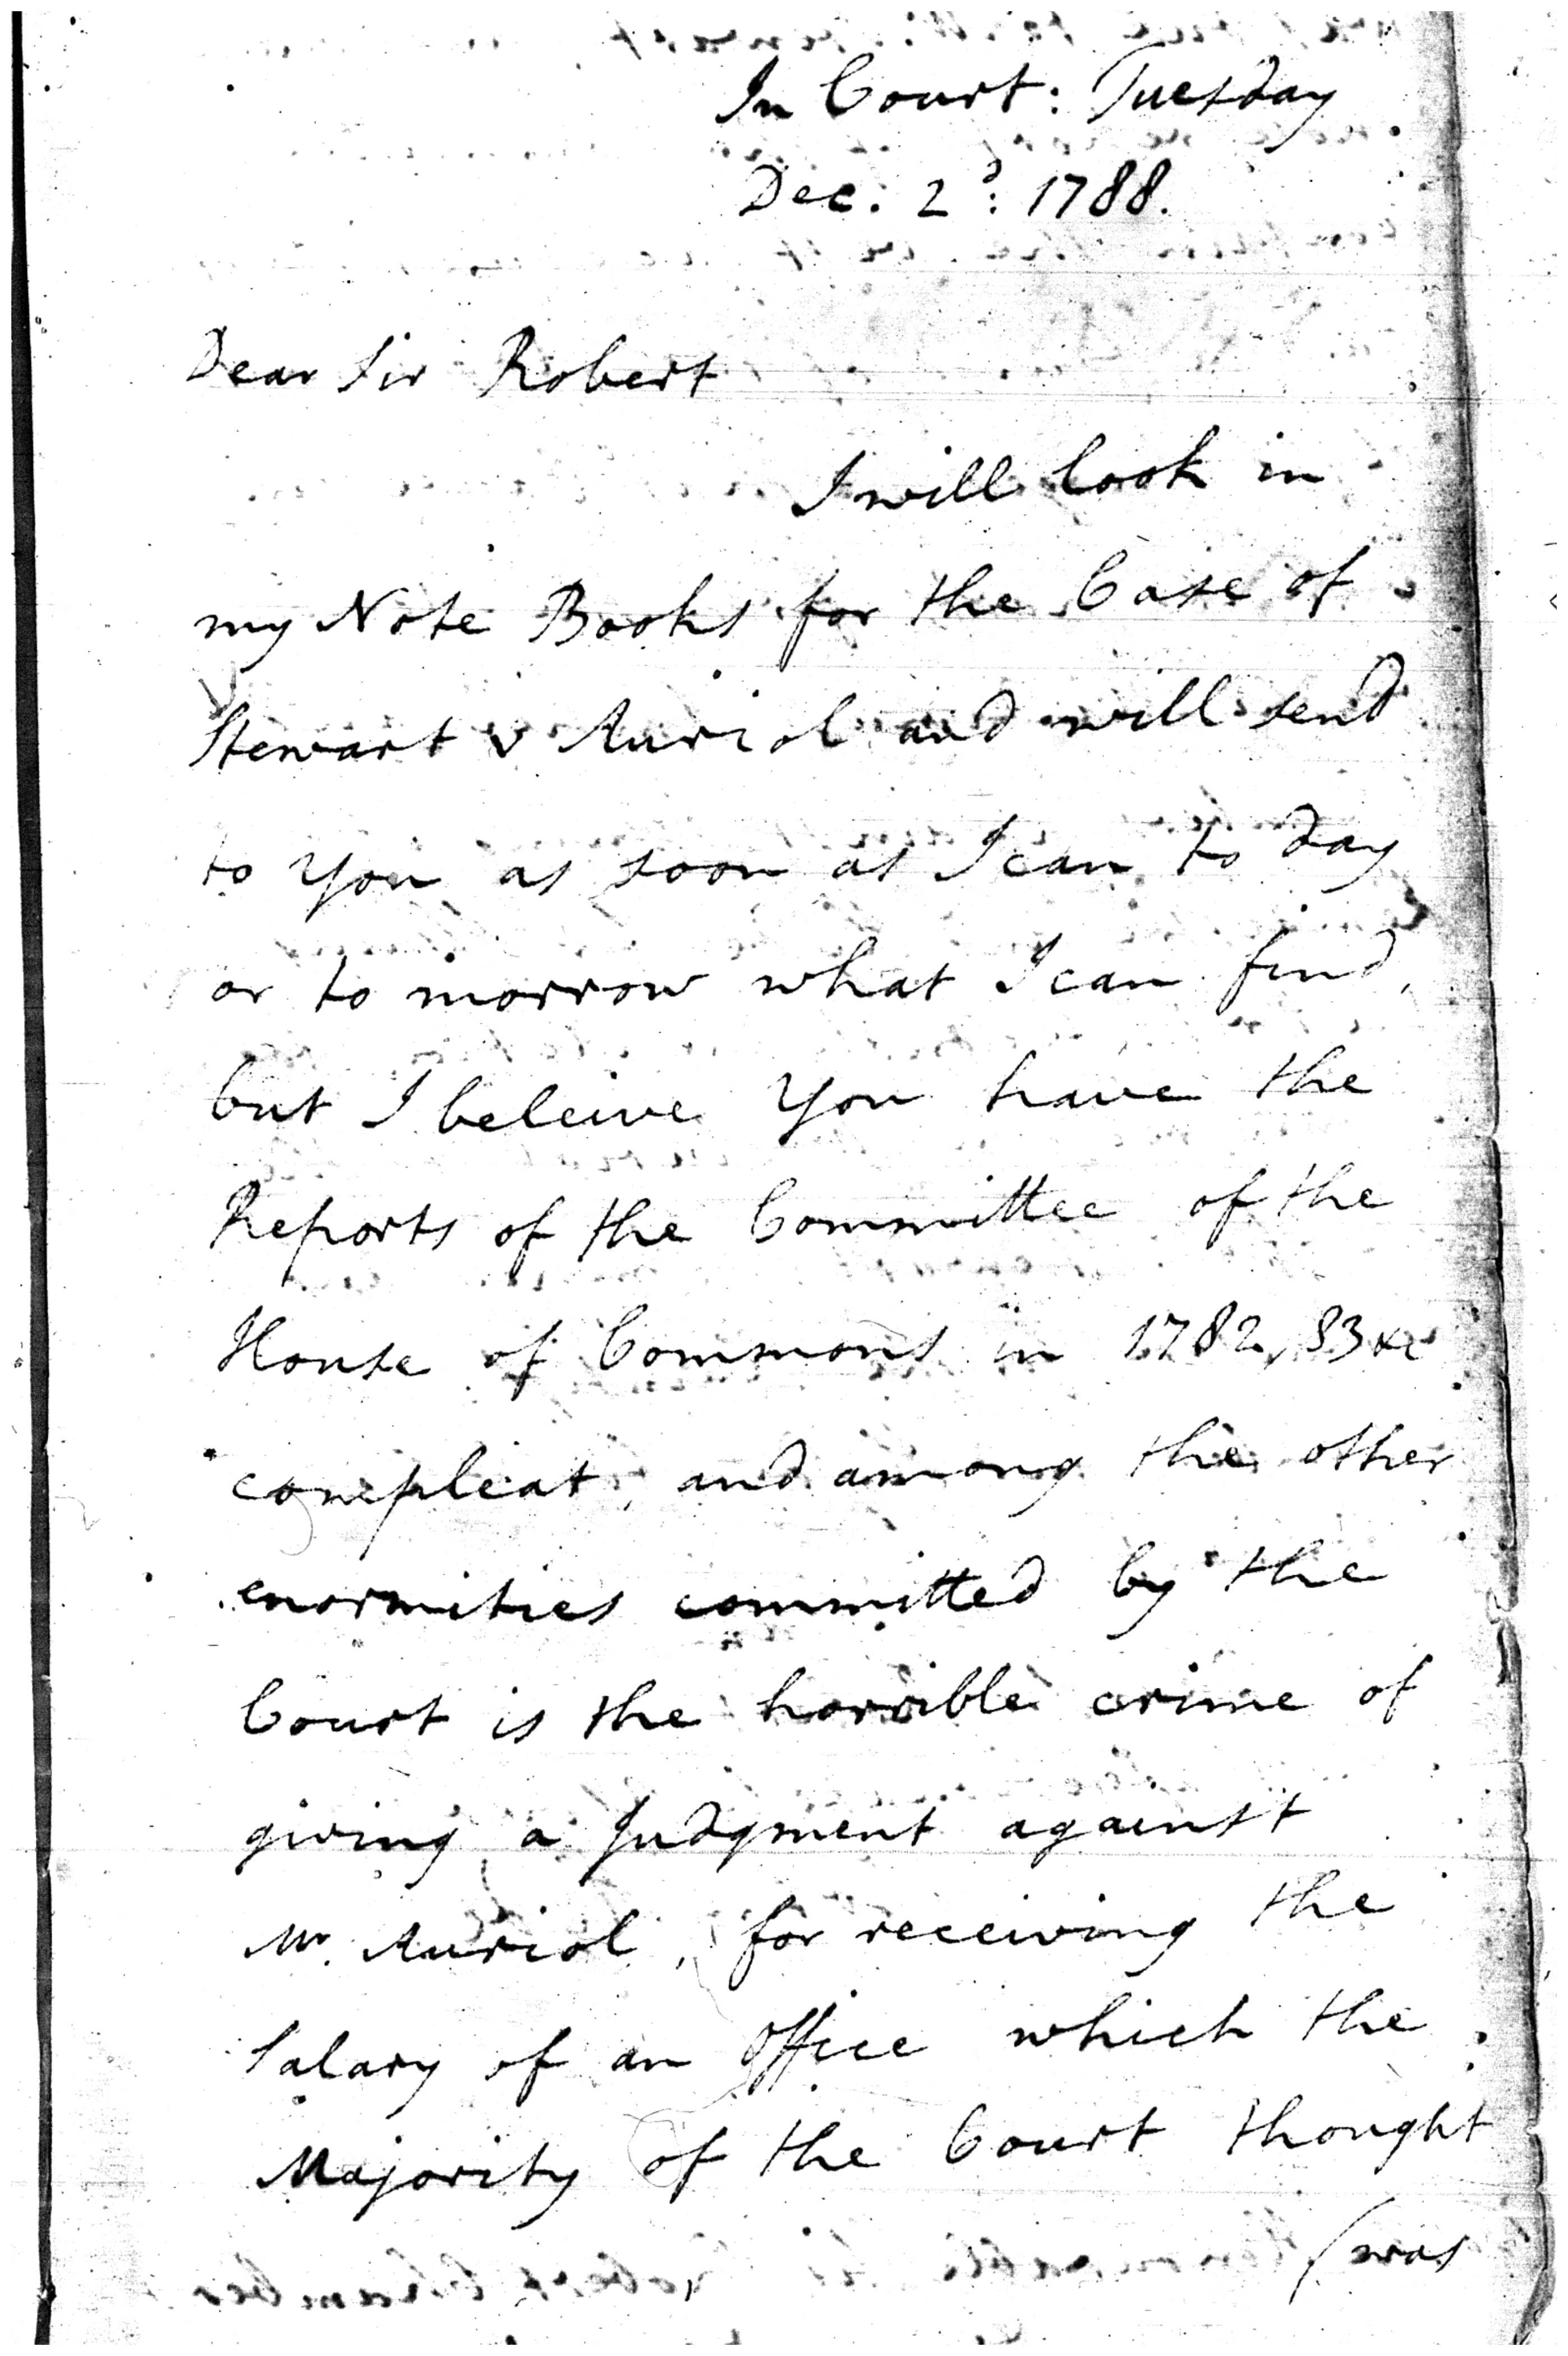 In Court: Tuesday
Dec. 2d: 1788.
Dear Sir Robert
I will look in
my Note Books for the Case of
Stewart v Auriol and will send
to You as soon as I can to day
or to morrow what I can find,
but I beleive You have the
Reports of the Committee of the
House of Commons in 1782, 83 &c
compleat, and among the other
enormities committed by the
Court is the horrible crime of
giving a Judgment against
Mr. Auriol, for receiving the
Salary of an Office which the
Majority of the Court thought
(was